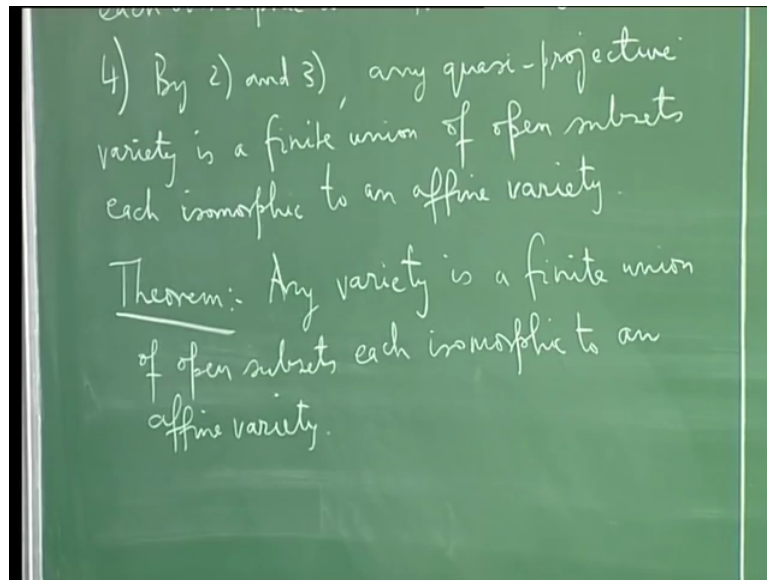 4) By 2) and 3), any quasi-projective
variety is a finite union of open subsets
each isomorphic to an affine variety.
Theorem:- Any variety is a finite union
of open subsets each isomorphic to an
affine variety.